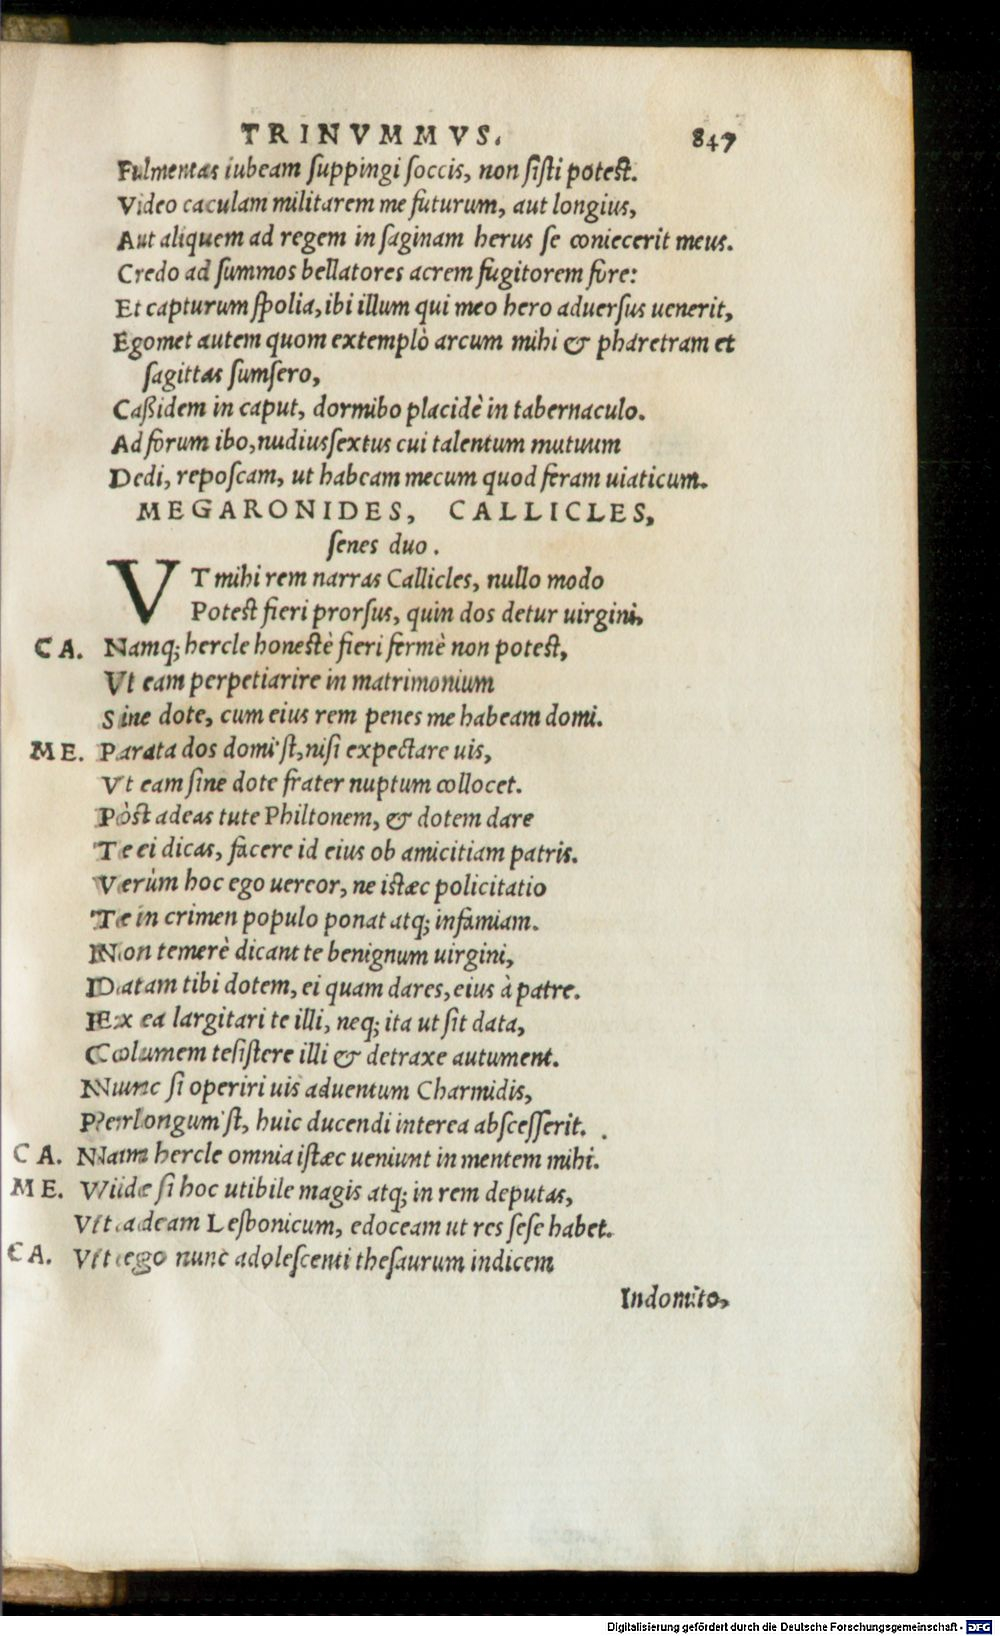 TRINVMMVS. 847
Fulmentas iubeam suppingi soccis, non sisti potest.
Video caculam militarem me futurum, aut longius,
Aut aliquem ad regem in saginam herus se coniecerit meus.
Credo ad summos bellatores acrem fugitorem fore:
Et capturum spolia, ibi illum qui meo hero aduersus uenerit,
Egomet autem quom extemplò arcum mihi & pharetram et
sagittas sumsero,
Caßidem in caput, dormibo placidè in tabernaculo.
Ad forum ibo, nudiussextus cui talentum mutuum
Dedi, reposcam, ut habeam mecum quod feram uiaticum.
MEGARONIDES, CALLICLES,
senes duo.
VT mihi rem narras Callicles, nullo modo
Potest fieri prorsus, quin dos detur uirgini,
CA. Namq; hercle honestè fieri fermè non potest,
Vt eam perpetiarire in matrimonium
Sine dote, cum eius rem penes me habeam domi.
ME. Parata dos domi'st, nisi expectare uis,
Vt eam sine dote frater nuptum collocet.
Pòst adeas tute Philtonem, & dotem dare
Te ei dicas, facere id eius ob amicitiam patris.
Verùm hoc ego uereor, ne istæc policitatio
Te in crimen populo ponat atq; infamiam.
Non temerè dicant te benignum uirgini,
Datam tibi dotem, ei quam dares, eius à patre.
Ex ea largitari te illi, neq; ita ut sit data,
Columem tesistere illi & detraxe autument.
Nunc si operiri uis aduentum Charmidis,
Perlongum'st, huic ducendi interea abscesserit.
CA. Nam hercle omnia istæc ueniunt in mentem mihi.
ME. Vide si hoc utibile magis atq; in rem deputas,
Vt adeam Lesbonicum, edoceam ut res sese habet.
CA. Vt ego nunc adolescenti thesaurum indicem
Indomito,
Digitalisierung gefördert durch die Deutsche Forschungsgemeinschaft - DFG